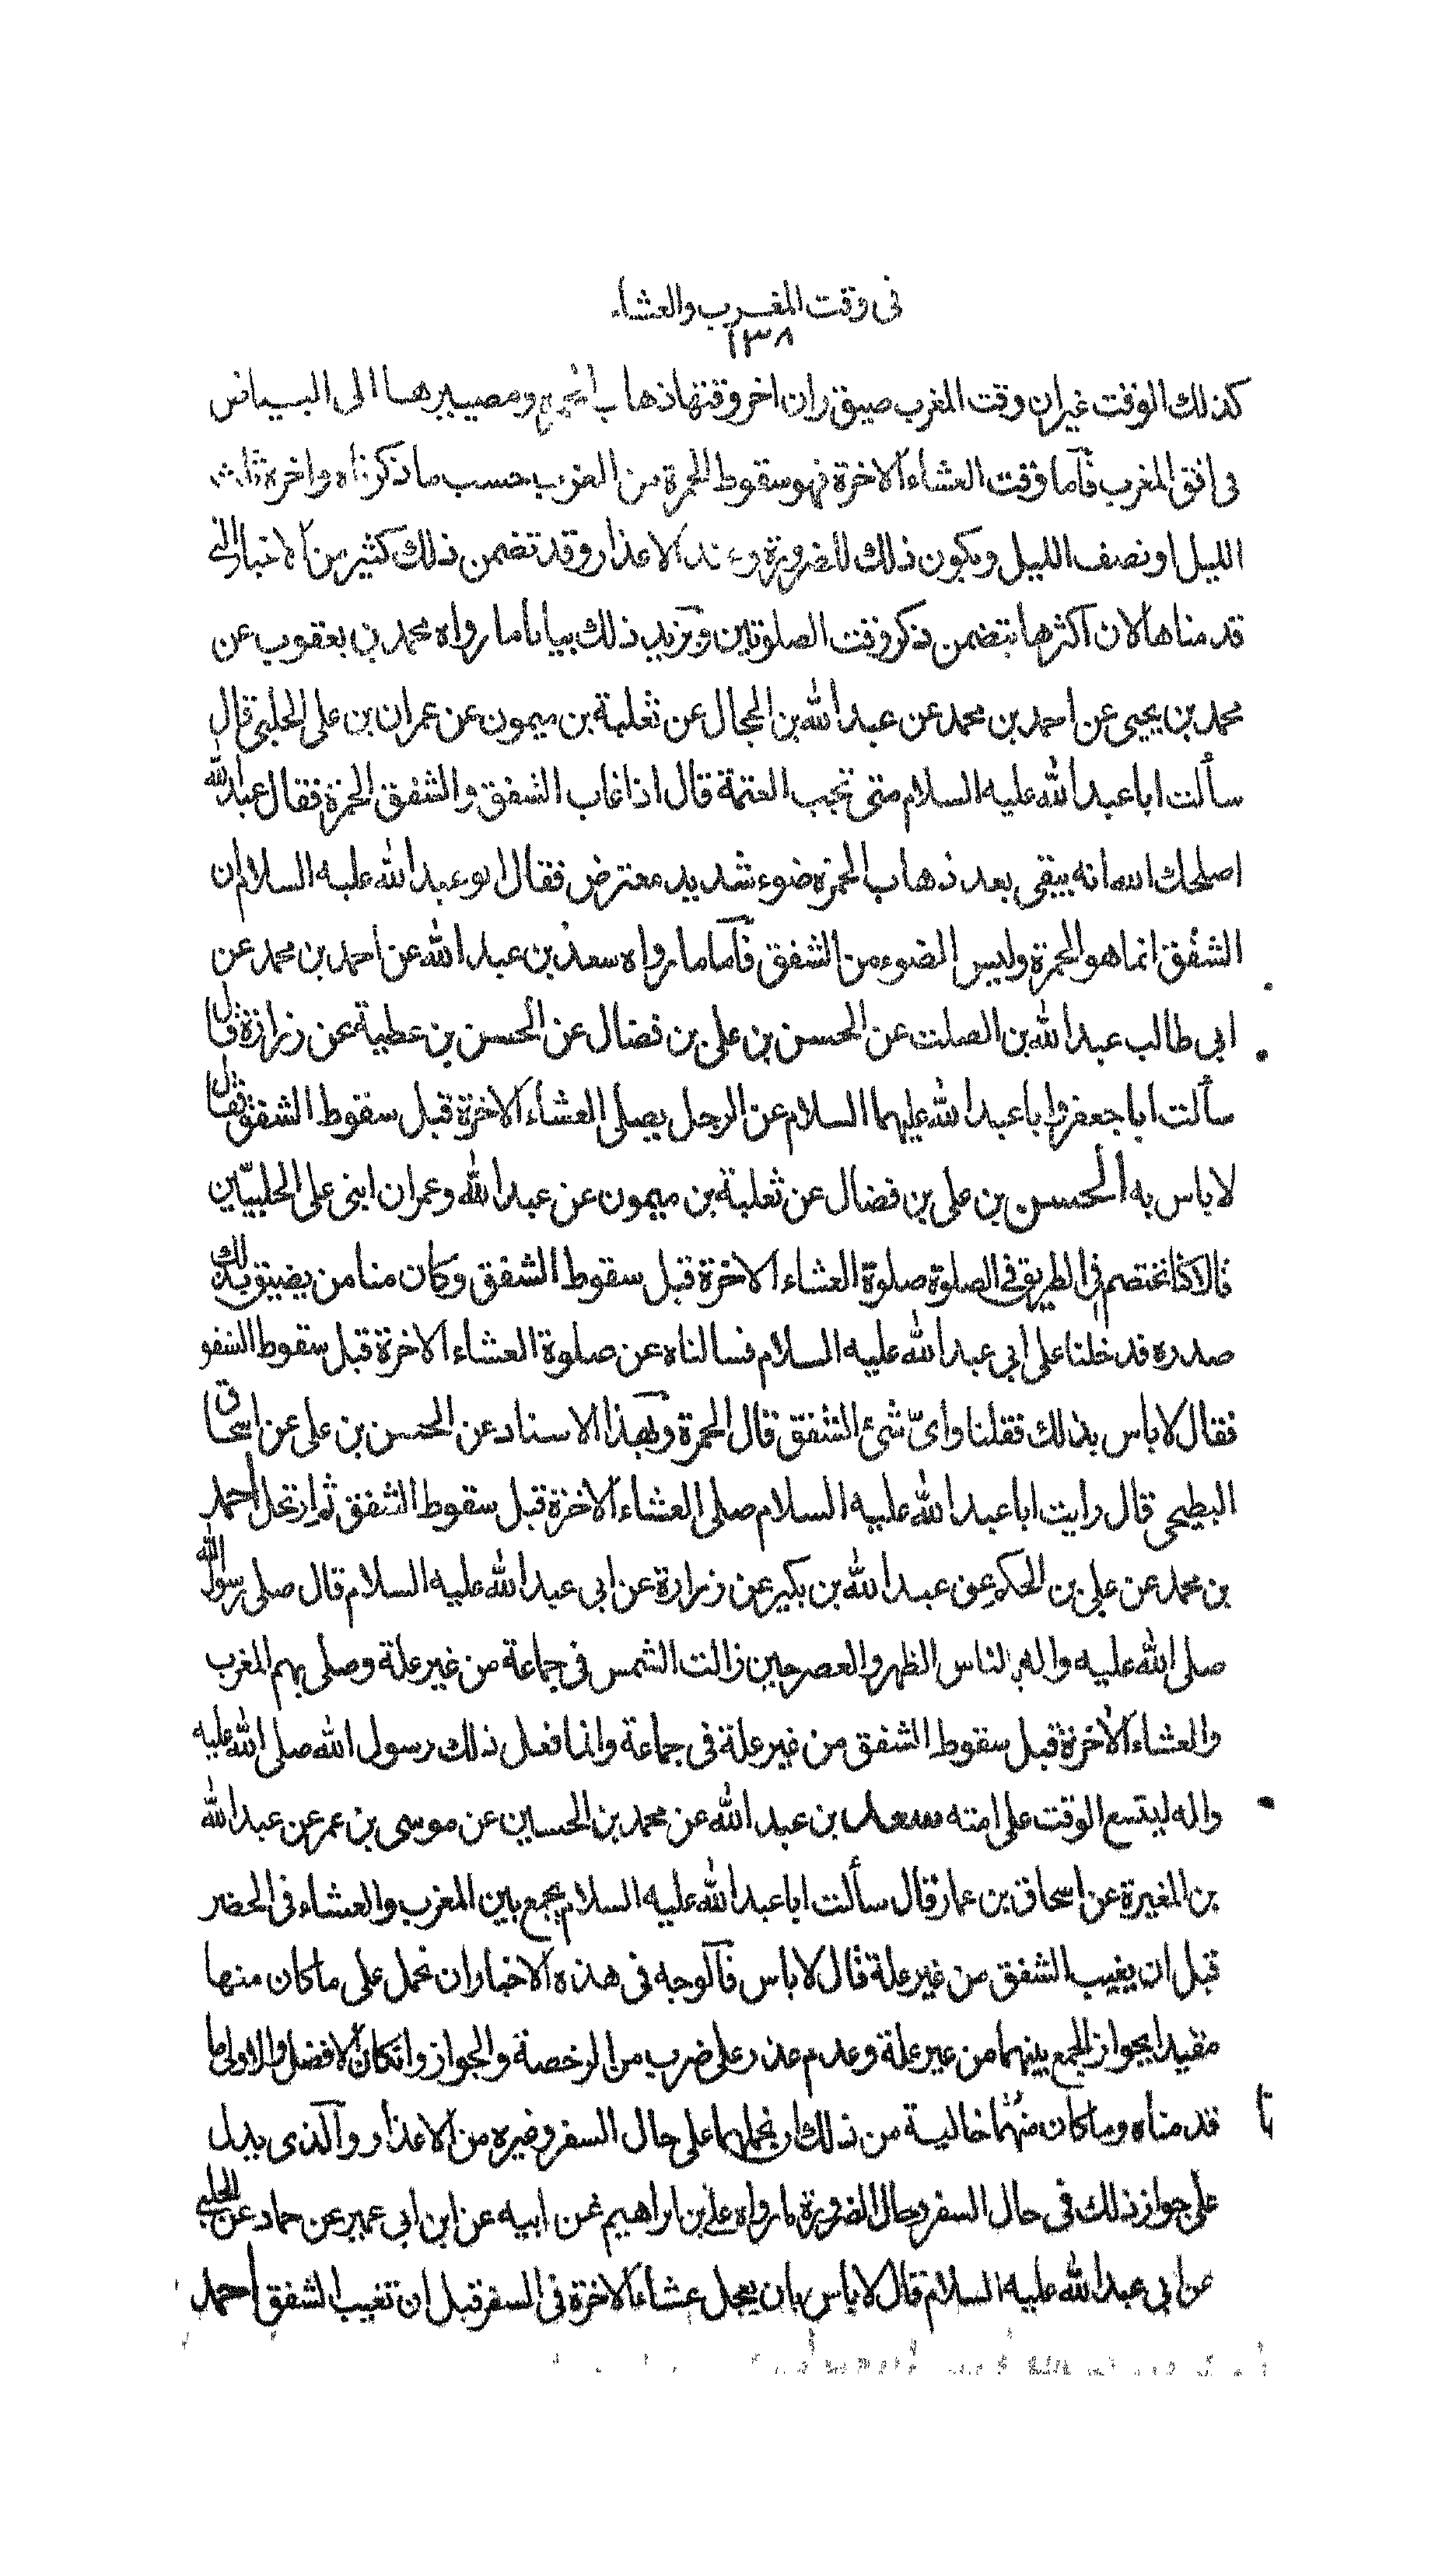 فى وقت المغرب والعشاء
١٣٨
كذلك الوقت غير ان وقت المغرب ضيق ران اخر وقتها ذهاب الحمرة ومصيرها الى البياض
فى افق المغرب فآما وقت العشاء الاخرة فهو سقوط الحمرة من المغرب حسب ما ذكرناه واخره ثلث
الليل او نصف الليل ويكون ذلك للضرورة وعند الاعذار وقد تضمن ذلك كثير من الاخبار التى
قدمناها لان اكثرها يتضمن ذكر وقت الصلوتين ويزيد ذلك بيانا ما رواه محمد بن يعقوب عن
محمد بن يحيى عن احمد بن محمد عن عبد الله بن الحجال عن ثعلبة بن ميمون عن عمران بن على الحلبى قال
سألت ابا عبد الله عليه السلام متى تجب العتمة قال اذا غاب الشفق والشفق الحمرة فقال عبيد الله
اصلحك الله انه يبقى بعد ذهاب الحمرة ضوء شديد معترض فقال ابو عبد الله عليه السلام ان
الشفق انما هو الحمرة وليس الضوء من الشفق فآما ما رواه سعد بن عبد الله عن احمد بن محمد عن
ابى طالب عبد الله بن الصلت عن الحسن بن على بن فضال عن الحسن بن عطية عن زرارة قال
سألت ابا جعفر وابا عبد الله عليهما السلام عن الرجل يصلى العشاء الاخرة قبل سقوط الشفق فقال
لا باس به الحسن بن على بن فضال عن ثعلبة بن ميمون عن عبد الله وعمران ابنى على الحلبيّين
قالا كنا نختصم فى الطريق فى الصلوة صلوة العشاء الاخرة قبل سقوط الشفق وكان منا من يضيق بذلك
صدره فدخلنا على ابى عبد الله عليه السلام فسالناه عن صلوة العشاء الاخرة قبل سقوط الشفق
فقال لا باس بذلك فقلنا وأىّ شئ الشفق قال الحمرة وبهذا الاسناد عن الحسن بن على عن اسحاق
البطيحى قال رايت ابا عبد الله عليه السلام صلى العشاء الاخرة قبل سقوط الشفق ثم ارتحل احمد
بن محمد عن على بن الحكم عن عبد الله بن بكير عن زرارة عن ابى عبد الله عليه السلام قال صلى رسول الله
صلى الله عليه واله بالناس الظهر والعصر حين زالت الشمس فى جماعة من غير علة وصلى بهم المغرب
والعشاء الاخرة قبل سقوط الشفق من غير علة فى جماعة وانما فعل ذلك رسول الله صلى الله عليه
واله ليتسع الوقت على امته سعد بن عبد الله عن محمد بن الحسين عن موسى بن عمر عن عبد الله
بن المغيرة عن اسحاق بن عمار قال سألت ابا عبد الله عليه السلام يجمع بين المغرب والعشاء فى الحضر
قبل ان يغيب الشفق من غير علة قال لا باس فآلوجه فى هذه الاخبار ان نحمل على ما كان منها
مقيدا بجواز الجمع بينهما من غير علة وعدم عذر على ضرب من الرخصة والجواز وانكان الافضل والاولى ما
قدمناه وما كان منها خالية من ذلك ان نحملها على حال السفر وغيره من الاعذار وآلذى يدل
على جواز ذلك فى حال السفر وحال الضرورة ما رواه على بن ابراهيم عن ابيه عن ابن ابى عمير عن حماد عن الحلبى
عن ابى عبد الله عليه السلام قال لا باس بان يعجل عشاء الاخرة فى السفر قبل ان تغيب الشفق احمد